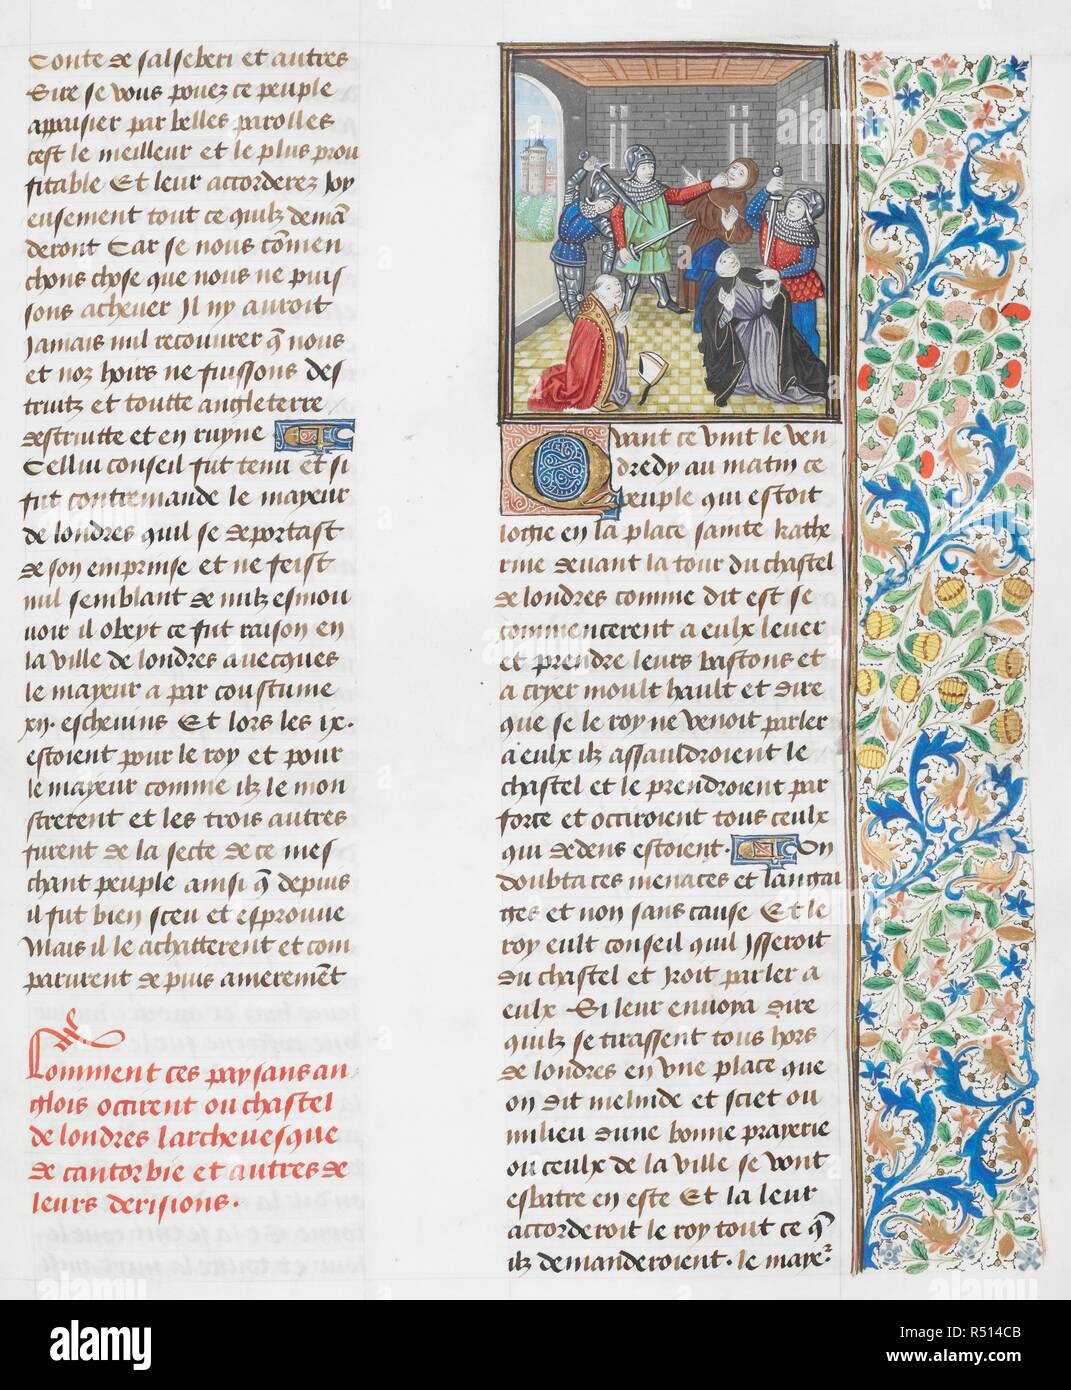 Conte de salseberi et autres
Sire se vous pouez ce peuple
appaisier par belles parolles
cest le meilleur et le plus prou
fitable Et leur accorderez Joy
eusement tout ce quilz demã
deront Car se nous cõmen
chons chose que nous ne puis
sons achever Il ny auroit
Jamais nul recouvrer q̃ nous
et noz hoirs ne fuissons des
truitz et toutte angleterre
destruitte et en ruyne
Cellui conseil fut tenu et si
fut contremande le mayeur
de londres quil se deportast
de son emprinse et ne feist
nul semblant de nulz esmou
voir il obeyt ce fut raison en
la ville de londres avecques
le mayeur a par coustume
xij. eschevins Et lors les ix.
estoient pour le roy et pour
le mayeur comme ilz le mon
strerent et les trois autres
furent de la secte de ce mes
chant peuple ainsi q̃ depuis
il fut bien sceu et esprouve
Mais il le achatterent et com
parurent depuis amerem̃et
Comment ces paysans an
glois occirent ou chastel
de londres larchevesque
de cantorbie et autres de
leurs derisions.
Quant ce vint le ven
dredy au matin ce
peuple qui estoit
logie en la place sainte kathe
rine devant la tour du chastel
de londres comme dit est se
commencerent a eulx lever
et prendre leurs bastons et
a cryer moult hault et dire
que se le roy ne venoit parler
a eulx ilz assauldroient le
chastel et le prendroient par
force et occiroient tous ceulx
qui dedens estoient. On
doubta ces menaces et langai
ges et non sans cause Et le
roy eult conseil quil Isseroit
du chastel et Iroit parler a
eulx Si leur envoya dire
quilz se tirassent tous hors
de londres en une place que
on dit melnide et sciet ou
milieu dune bonne prayerie
ou ceulx de la ville se vont
esbatre en este Et la leur
accorderoit le roy tout ce q̃
ilz demanderoient. le mayer
alamy
Image ID: R514CB
www.alamy.com